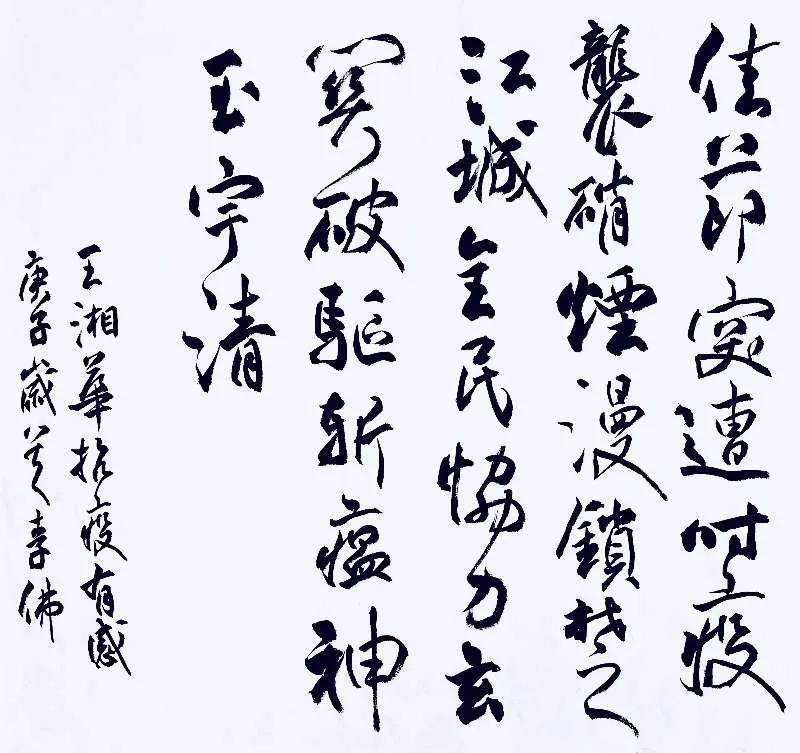 佳節突遭时疫
襲硝煙漫鎖楚
江城全民協力玄
關破驅斬瘟神
玉宇清
王湘華抗疫有感
庚子歲佛